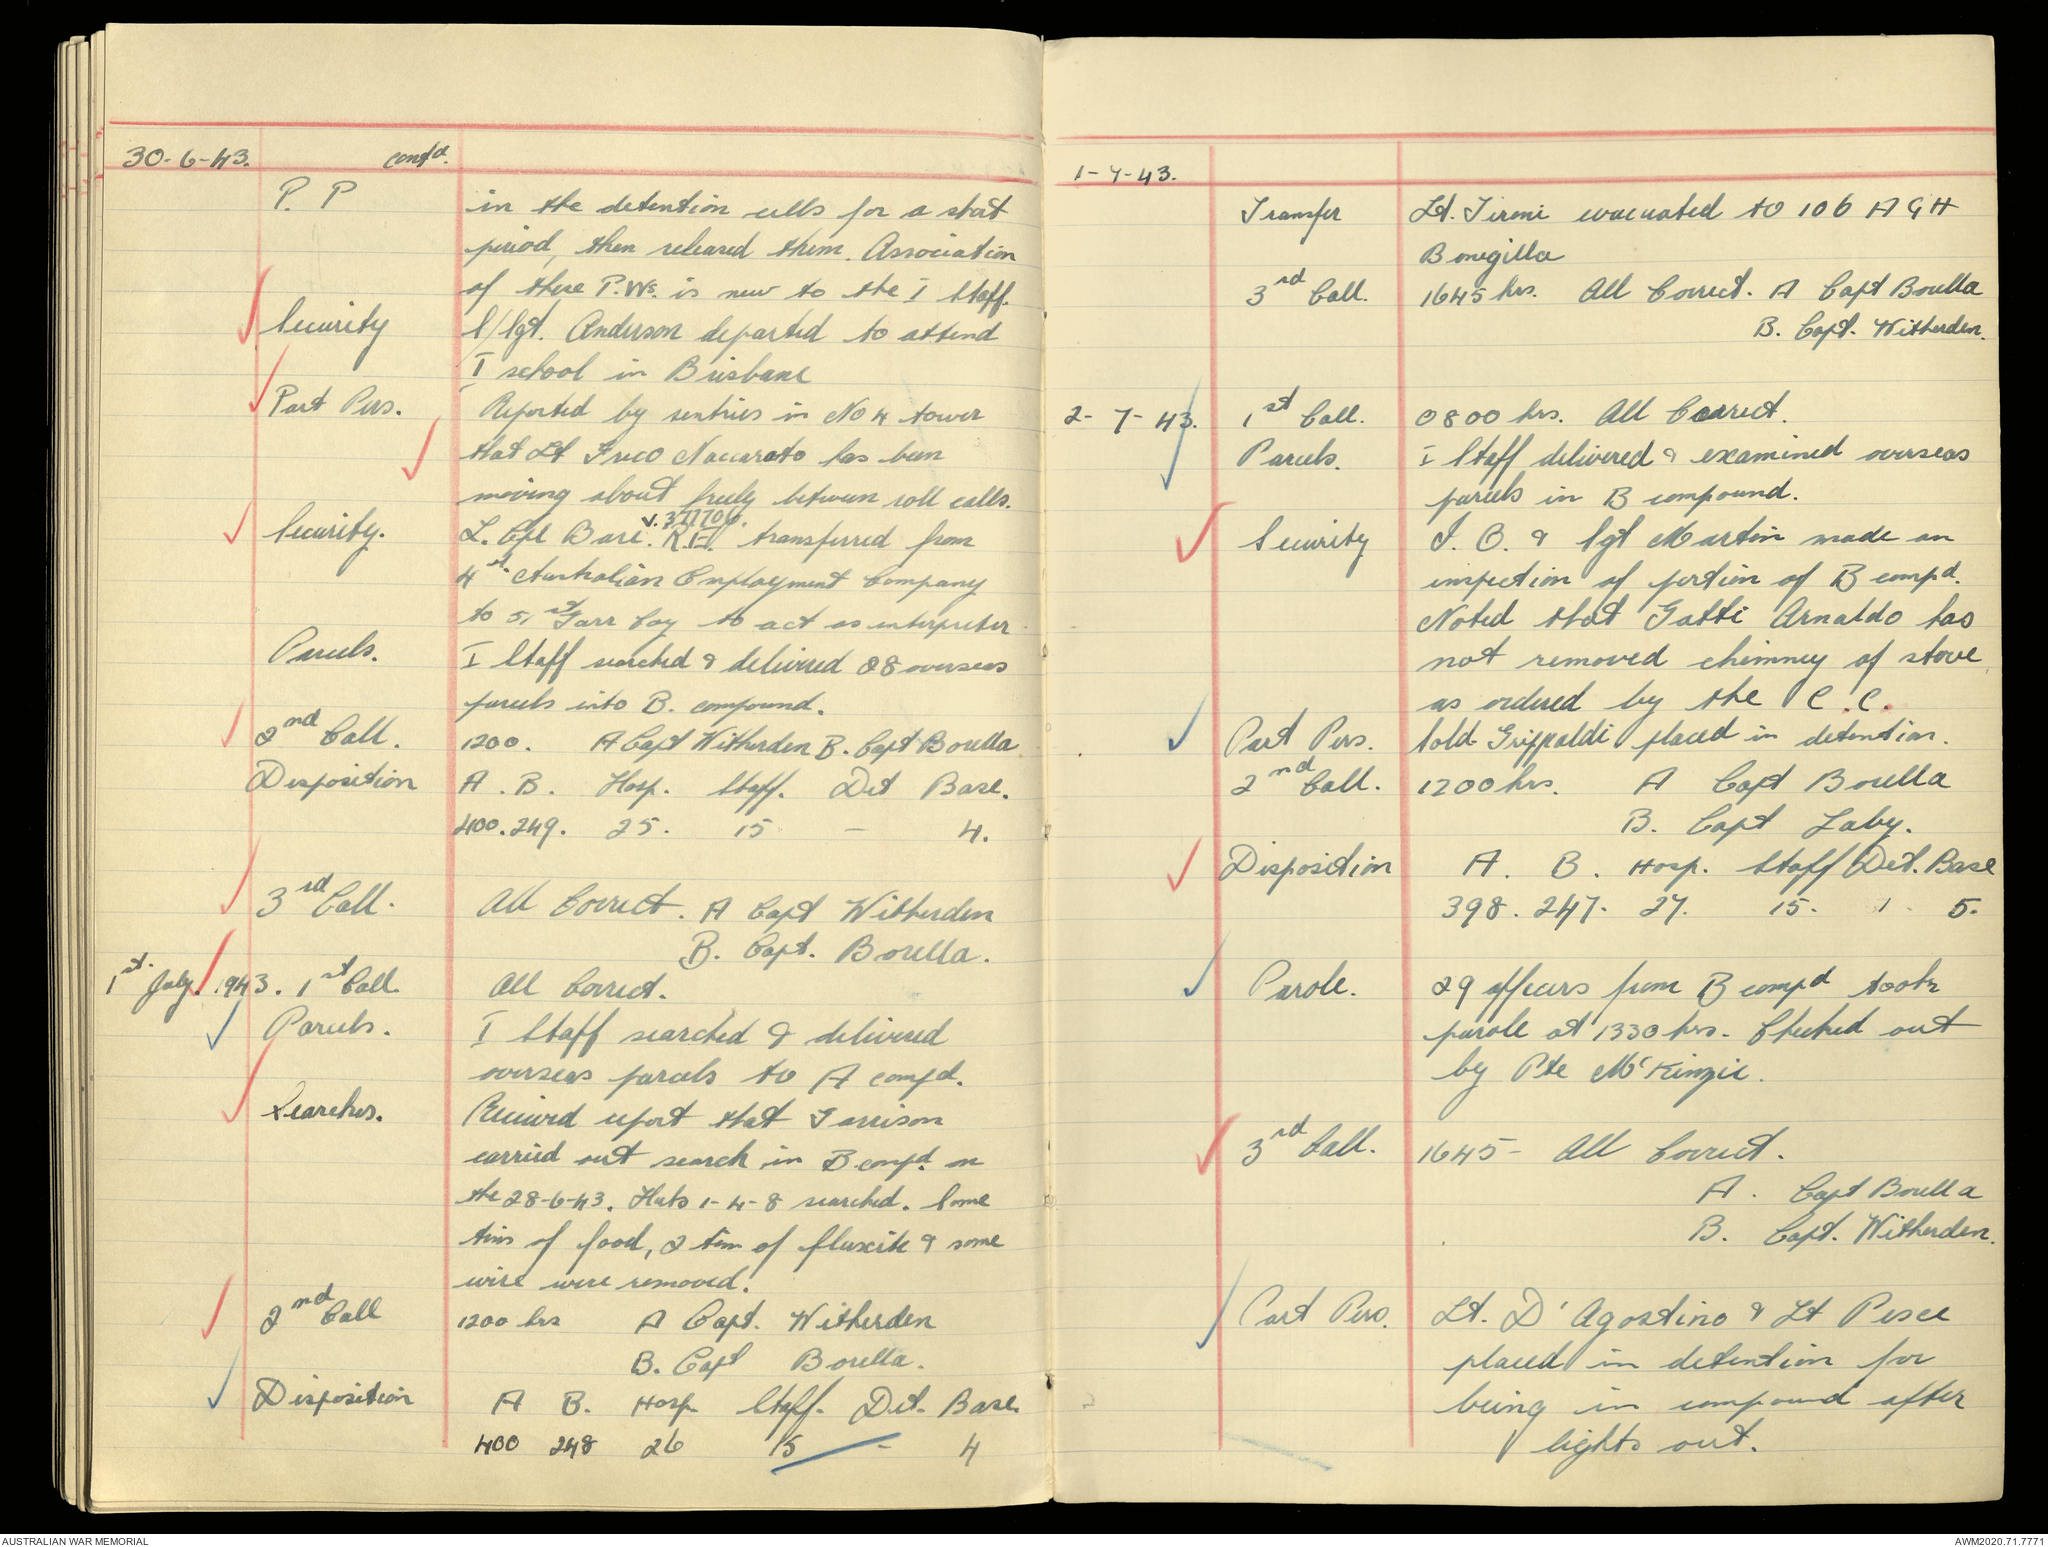 30-6-43. contd.
P. P in the detention cells for a short
period, then released them. Association
of these P.Ws. is new to the I Staff.
Security S/Sgt. Anderson departed to attend
I school in Brisbane
Part Pers. Reported by sentries in No 4 tower
that Lt Naccarato has been
moving about freely between roll calls.
V.377706.
Security. L. Cpl Bari. R.H. transferred from
4th Australian Employment Company
to 51st Garr Coy to act as interpreter
Parcels. I Staff searched & delivered 28 overseas
parcels into B. compound.
2nd Call. 1200. A Capt Witherden B. Capt Borella
Disposition A. B. Hosp. Staff. Det Base.
400. 249. 25. 15 - 4.
3rd Call. All Correct. A Capt Witherden
B. Capt. Borella.
1st. July. 1943. 1st Call. All Correct.
Parcels. I Staff searched & delivered
overseas parcels to A compd.
Searches. Received report that Garrison
carried out search in B. compd. on
the 28-6-43. Huts 1-4-8 searched. Some
tins of food, 2 tins of fluxite & some
wire were removed.
2nd Call 1200 hrs A Capt. Witherden
B. Capt Borella.
Disposition A B. Hosp. Staff. Det. Base.
400 248 26 15 - 4
1-7-43.
Transfer Lt. Tironi evacuated to 106 A G H
Bonegilla
3rd Call. 1645 hrs. All Correct. A Capt Borella
B. Capt. Witherden.
2-7-43. 1st Call. 0800 hrs. All Correct.
Parcels. I Staff delivered & examined overseas
parcels in B compound.
Security I. O. & Sgt Martin made an
inspection of portion of B compd.
Noted that Gatti Arnaldo has
not removed chimney of stove
as ordered by the C.C.
Part Pers. Sold. Griffaldi placed in detention.
2nd Call. 1200 hrs. A Capt Borella
B. Capt Laby.
Disposition A. B. Hosp. Staff Det. Base
398. 247. 27. 15. 1. 5.
Parole. 29 officers from B compd took
parole at 1330 hrs. Checked out
by Pte McKinzie.
3rd Call. 1645 - All Correct.
A. Capt Borella
B. Capt. Witherden.
Part Pers. Lt. D'Agostino & Lt Pesce
placed in detention for
being in compound after
lights out.
AUSTRALIAN WAR MEMORIAL
AWM2020.71.7771